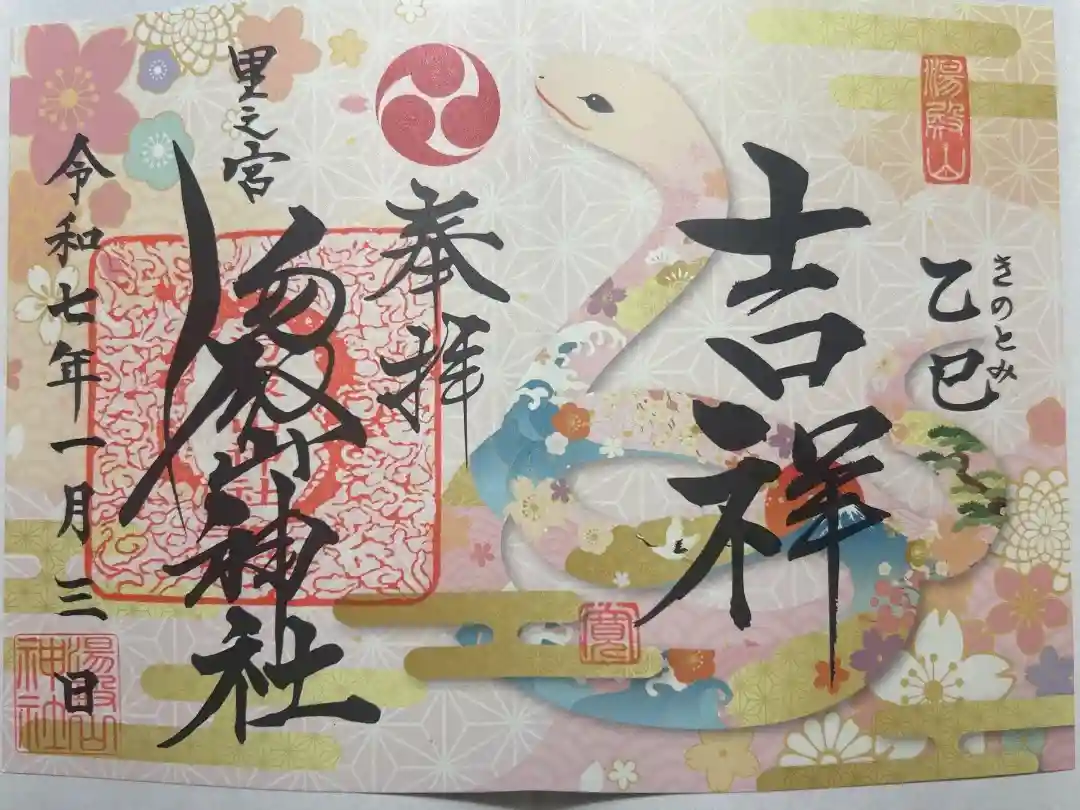 湯殿山
きのとみ
乙巳
吉祥
寛
奉拝
里之宮
湯殿山神社
令和七年一月三日
湯殿山
神社